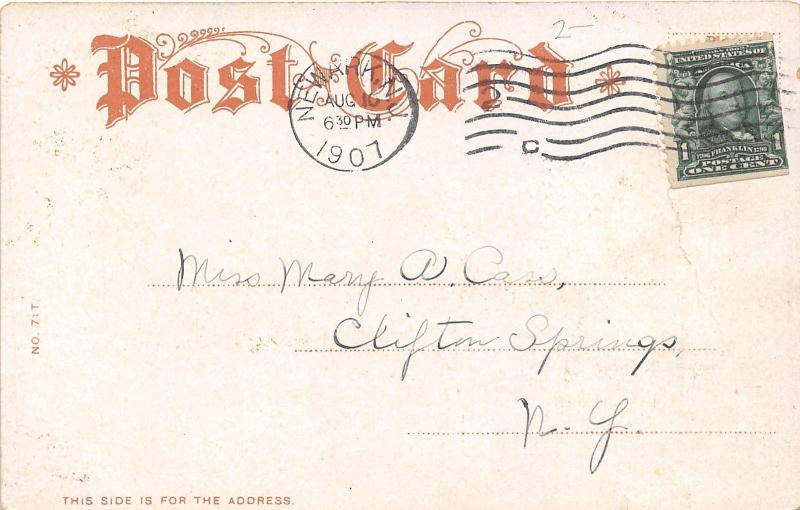 Post Card
2-
NEWARK, N.J.
AUG 10
6 30 PM
1907
C
UNITED STATES OF
AMERICA
1 1706 FRANKLIN 1790 1
POSTAGE
ONE CENT
Miss Mary A. Cass,
Clifton Springs,
N. Y.
NO. 71T
THIS SIDE IS FOR THE ADDRESS.